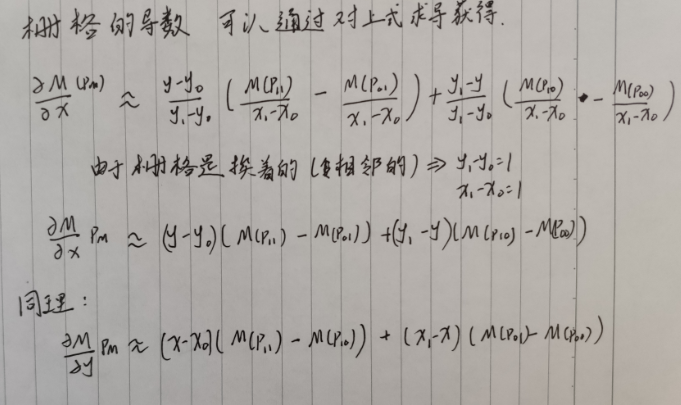 栅格的导数 可以通过对上式求导获得.
∂M/∂x (Pm) ≈ (y-y₀)/(y₁-y₀) ( M(P₁₁)/(x₁-x₀) - M(P₀₁)/(x₁-x₀) ) + (y₁-y)/(y₁-y₀) ( M(P₁₀)/(x₁-x₀) - M(P₀₀)/(x₁-x₀) )
由于栅格是挨着的(相邻的) ⇒ y₁-y₀=1
x₁-x₀=1
∂M/∂x Pm ≈ (y-y₀)( M(P₁₁) - M(P₀₁)) + (y₁-y)(M(P₁₀) - M(P₀₀))
同理:
∂M/∂y Pm ≈ (x-x₀)( M(P₁₁) - M(P₁₀)) + (x₁-x) ( M(P₀₁) - M(P₀₀))